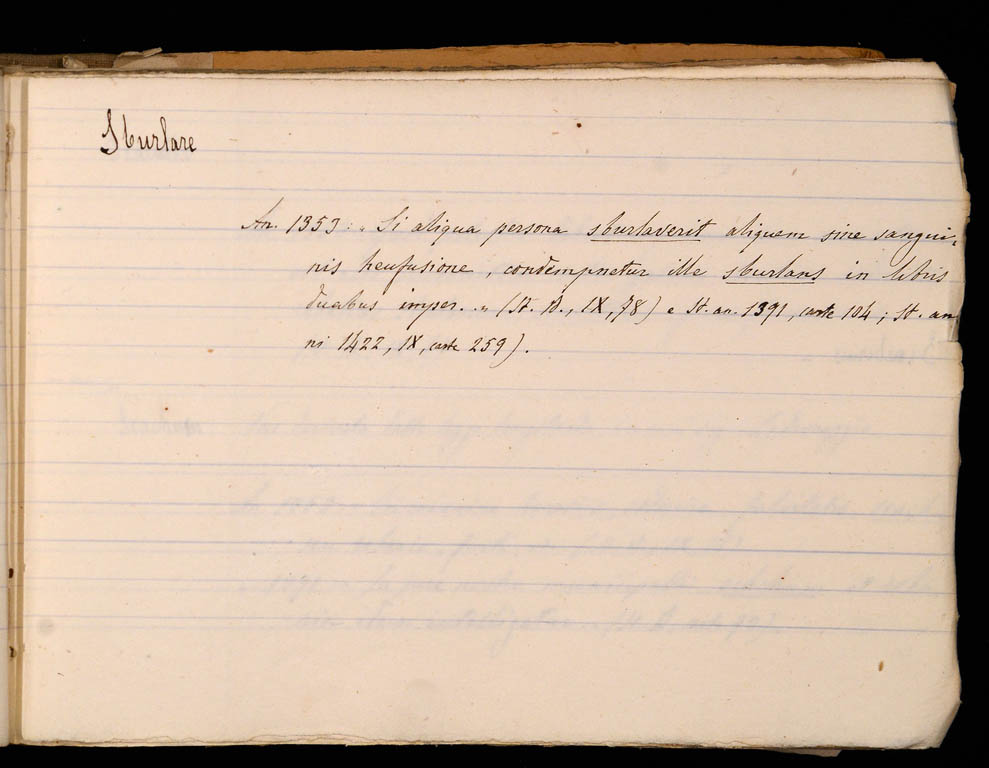 Sburlare
An. 1353: „ Si aliqua persona sburlaverit aliquem sine sangui-
nis heufusione, condempnetur ille sburlans in libris
duabus imper. .„ (St. D., IX, 78) e St. an. 1391, carte 104; St. an
ni 1422, IX, carte 259).